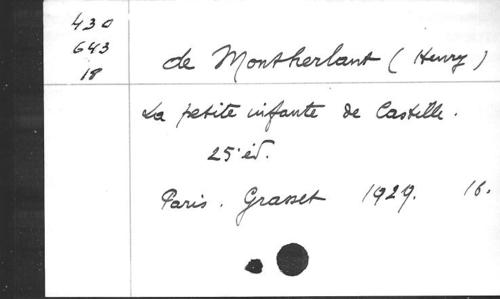 430
643
18
de Montherlant (Henry)
La petite infante de Castille.
25e éd.
Paris. Grasset 1929. 16.